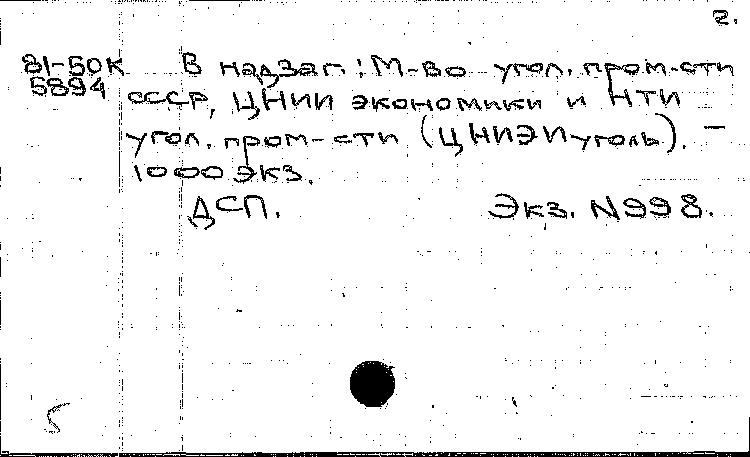 2.
81-50К В надзаг.: М-во угол. пром-сти
5894 СССР, ЦНИИ экономики и НТИ
угол. пром-сти (ЦНИЭИуголь). —
1000 экз.
ДСП. Экз. N998.
5